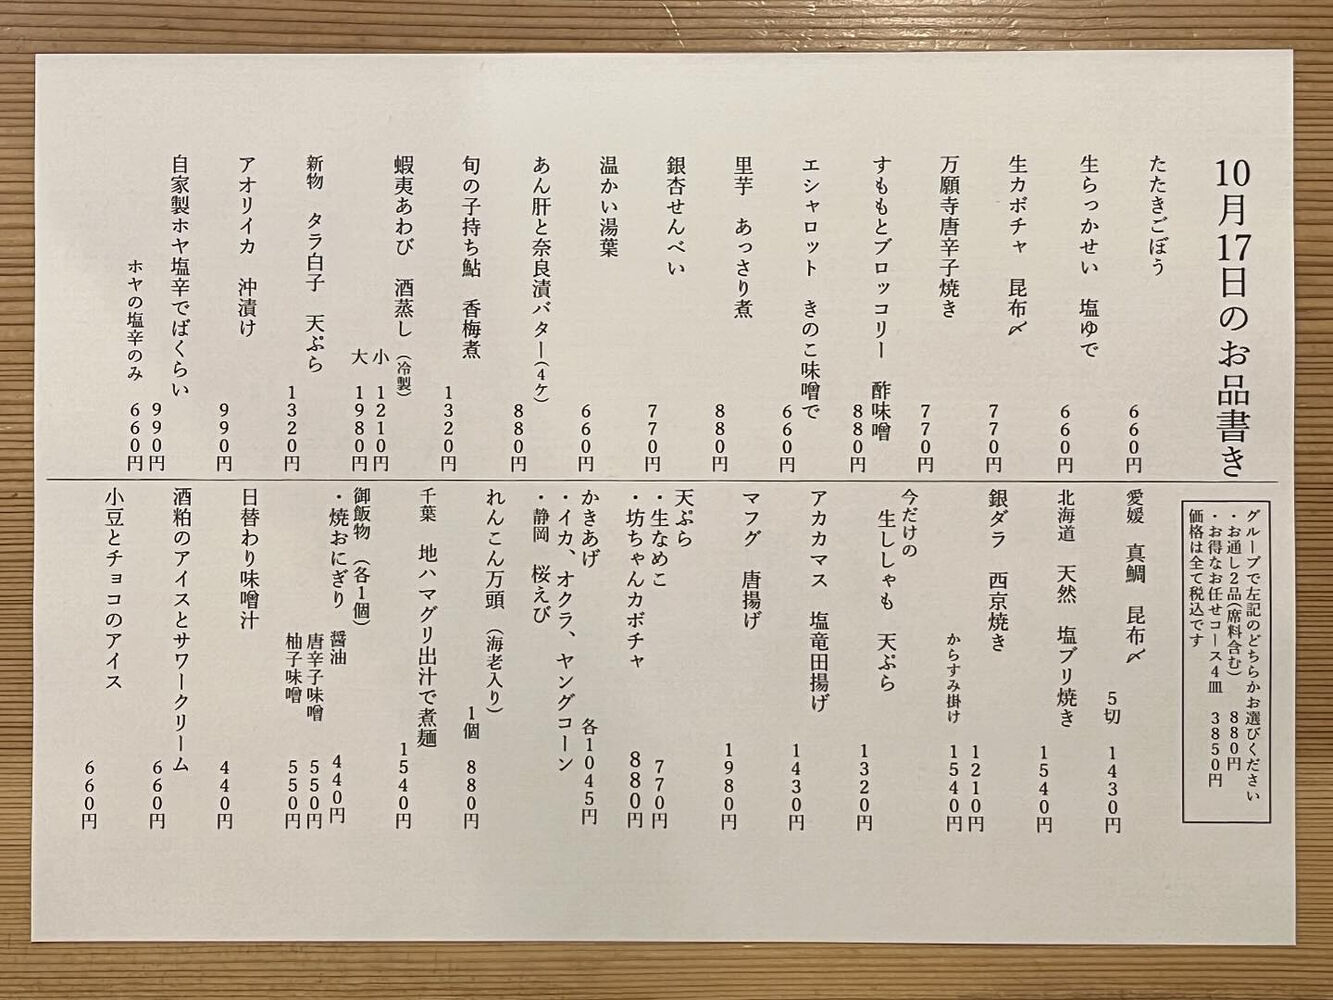 10月17日のお品書き
たたきごぼう
660円
生らっかせい 塩ゆで
660円
生カボチャ 昆布〆
770円
万願寺唐辛子焼き
770円
すももとブロッコリー 酢味噌
880円
エシャロット きのこ味噌で
660円
里芋 あっさり煮
880円
銀杏せんべい
770円
温かい湯葉
660円
あん肝と奈良漬バター(4ケ)
880円
旬の子持ち鮎 香梅煮
1320円
蝦夷あわび 酒蒸し (冷製)
小 1210円
大 1980円
新物 タラ白子 天ぷら
1320円
アオリイカ 沖漬け
990円
自家製ホヤ塩辛でばくらい
990円
ホヤの塩辛のみ 660円
グループで左記のどちらかお選びください
・お通し2品(席料含む) 880円
・お得なお任せコース4皿 3850円
価格は全て税込です
愛媛 真鯛 昆布〆
5切 1430円
北海道 天然 塩ブリ焼き
1540円
銀ダラ 西京焼き
1210円
からすみ掛け 1540円
今だけの
生ししゃも 天ぷら
1320円
アカカマス 塩竜田揚げ
1430円
マフグ 唐揚げ
1980円
天ぷら
・生なめこ 770円
・坊ちゃんカボチャ 880円
かきあげ 各1045円
・イカ、オクラ、ヤングコーン
・静岡 桜えび
れんこん万頭 (海老入り)
1個 880円
千葉 地ハマグリ出汁で煮麺
1540円
御飯物 (各1個)
・焼おにぎり 醤油 440円
唐辛子味噌 550円
柚子味噌 550円
日替わり味噌汁
440円
酒粕のアイスとサワークリーム
660円
小豆とチョコのアイス
660円